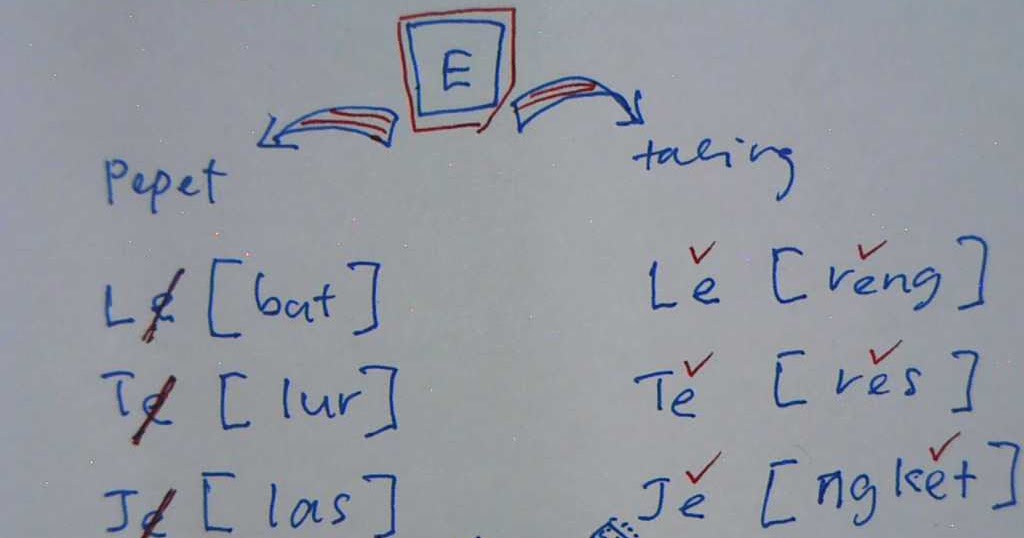 E
Pepet
taling
Le [bat]
Le [reng]
Te [lur]
Te [res]
Je [las]
Je [ngket]